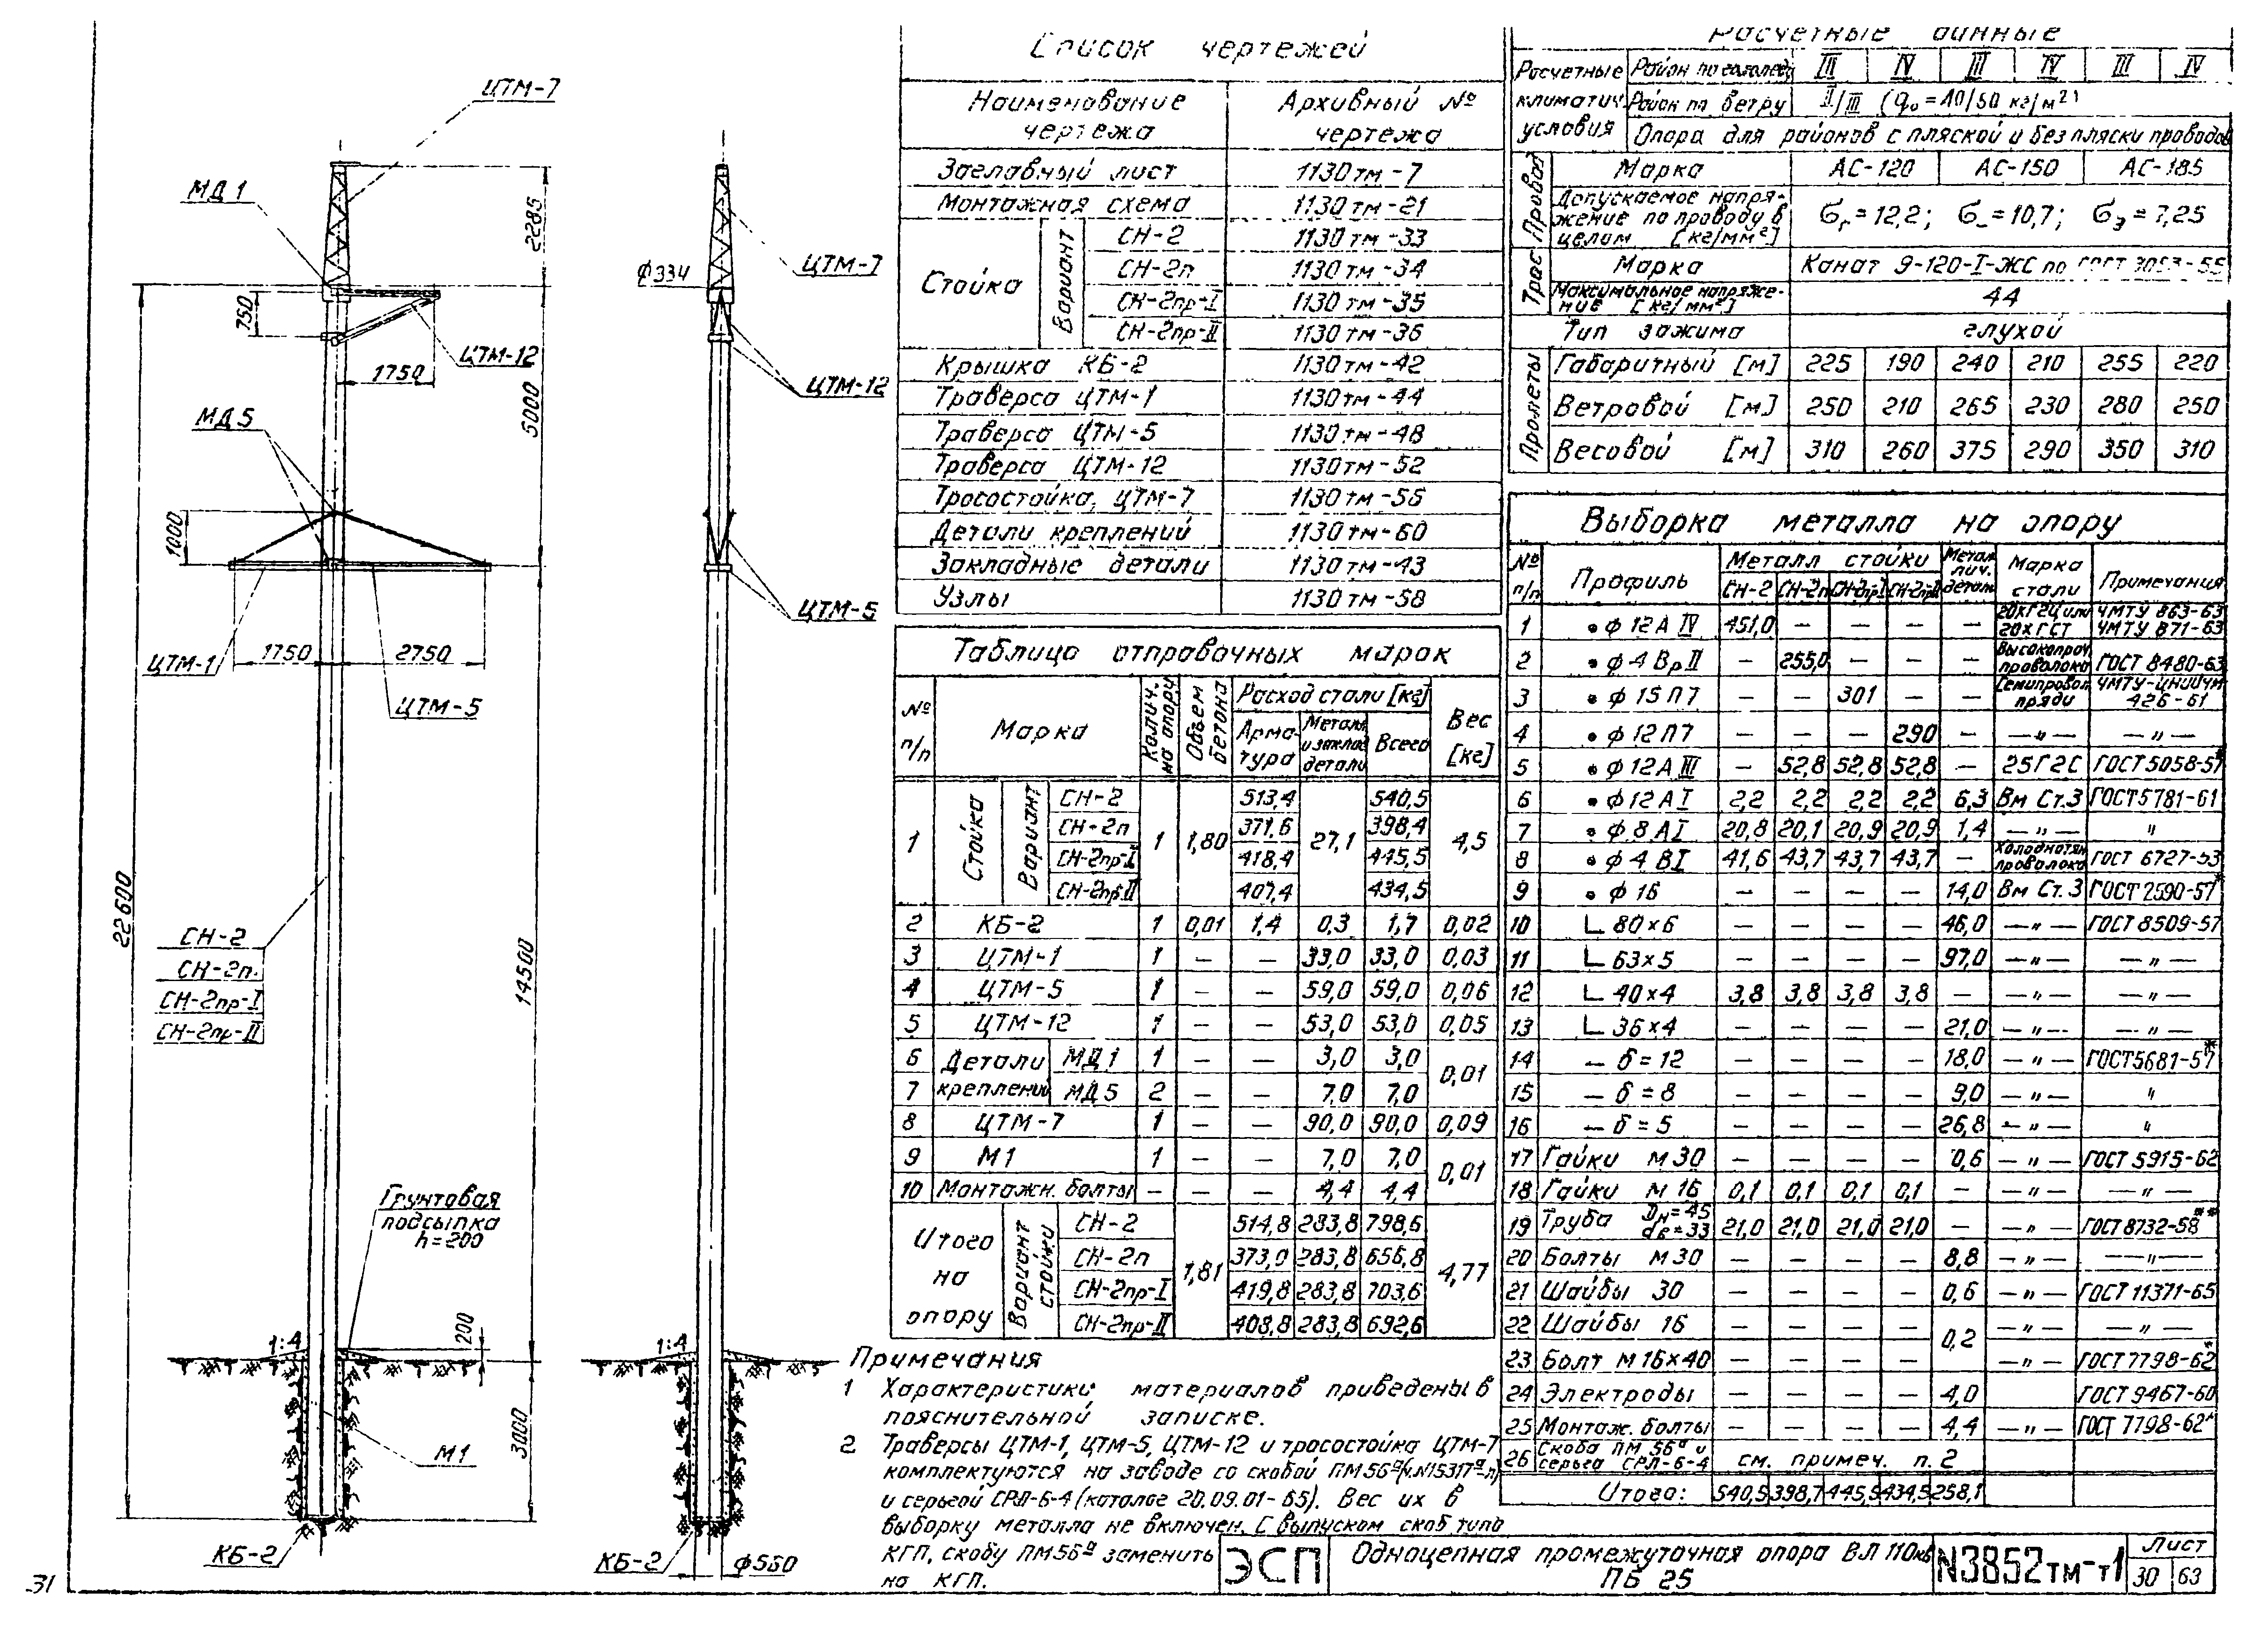 ЦТМ-7
МД1
2285
ϕ334
ЦТМ-7
750
ЦТМ-12
1750
5000
ЦТМ-12
МД5
1000
ЦТМ-5
1750
2750
ЦТМ-1
ЦТМ-5
22600
СН-2
СН-2п
СН-2пр-I
СН-2пр-II
14500
Грунтовая
подсыпка
h=200
200
1:4
1:4
3000
М1
КБ-2
КБ-2
ϕ560
31
Список чертежей
Наименование чертежа | Архивный № чертежа
Заглавный лист | 1130тм-7
Монтажная схема | 1130тм-21
Стойка | Вариант | СН-2 | 1130тм-33
СН-2п | 1130тм-34
СН-2пр-I | 1130тм-35
СН-2пр-II | 1130тм-36
Крышка КБ-2 | 1130тм-42
Траверса ЦТМ-1 | 1130тм-44
Траверса ЦТМ-5 | 1130тм-48
Траверса ЦТМ-12 | 1130тм-52
Тросостойка, ЦТМ-7 | 1130тм-56
Детали креплений | 1130тм-60
Закладные детали | 1130тм-43
Узлы | 1130тм-58
Таблица отправочных марок
№ п/п | Марка | Колич. на опору | Объем бетона | Расход стали [кг] | Вес [кг]
Арматура | Металл и заклад детали | Всего
1 | Стойка | Вариант | СН-2 | 1 | 1,80 | 513,4 | 27,1 | 540,5 | 4,5
СН-2п | 371,6 | 398,4
СН-2пр-I | 418,4 | 445,5
СН-2пр-II | 407,4 | 434,5
2 | КБ-2 | 1 | 0,01 | 1,4 | 0,3 | 1,7 | 0,02
3 | ЦТМ-1 | 1 | — | — | 33,0 | 33,0 | 0,03
4 | ЦТМ-5 | 1 | — | — | 59,0 | 59,0 | 0,06
5 | ЦТМ-12 | 1 | — | — | 53,0 | 53,0 | 0,05
6 | Детали креплений | МД1 | 1 | — | — | 3,0 | 3,0 | 0,01
7 | МД5 | 2 | — | — | 7,0 | 7,0
8 | ЦТМ-7 | 1 | — | — | 90,0 | 90,0 | 0,09
9 | М1 | 1 | — | — | 7,0 | 7,0 | 0,01
10 | Монтажн. болты | — | — | — | 4,4 | 4,4
Итого на опору | Вариант стойки | СН-2 | 1,81 | 514,8 | 283,8 | 798,6 | 4,77
СН-2п | 373,0 | 283,8 | 656,8
СН-2пр-I | 419,8 | 283,8 | 703,6
СН-2пр-II | 408,8 | 283,8 | 692,6
Примечания
1 Характеристики материалов приведены в
пояснительной записке.
2 Траверсы ЦТМ-1, ЦТМ-5, ЦТМ-12 и тросостойка ЦТМ-7
комплектуются на заводе со скобой ПМ56ᵃ
и серьгой СРЛ-6-4 (каталог 20.09.01-65). Вес их в
выборку металла не включен. С выпуском скоб типа
КГП, скобу ПМ56ᵃ заменить
на КГП.
Расчетные данные
Расчетные климатич. условия | Район по гололеду | III | IV | III | IV | III | IV
Район по ветру | II/III (q₀=40/50 кг/м²)
Опора для районов с пляской и без пляски проводов
Провод | Марка | АС-120 | АС-150 | АС-185
Допускаемое напряжение по проводу в целом [кг/мм²] | бг=12,2; б-=10,7; бэ=7,25
Трос | Марка | Канат 9-120-I-ЖС по ГОСТ 3063-55
Максимальное напряжение [кг/мм²] | 44
Тип зажима | глухой
Пролеты | Габаритный [м] | 225 | 190 | 240 | 210 | 255 | 220
Ветровой [м] | 250 | 210 | 265 | 230 | 280 | 250
Весовой [м] | 310 | 260 | 375 | 290 | 350 | 310
Выборка металла на опору
№ п/п | Профиль | Металл стойки | Металлич. детали | Марка стали | Примечания
СН-2 | СН-2п | СН-2пр-I | СН-2пр-II
1 | • ϕ 12А IV | 451,0 | — | — | — | — | 20ХГ2Ц или 20ХГСТ | ЧМТУ 863-63 ЧМТУ 871-63
2 | • ϕ 4 Вр II | — | 255,0 | — | — | — | Высокопроч. проволока | ГОСТ 8480-63
3 | • ϕ 15 П7 | — | — | 301 | — | — | Семипровол. пряди | ЧМТУ-ЦНИИЧМ 426-61
4 | • ϕ 12 П7 | — | — | — | 290 | — | —„— | —„—
5 | • ϕ 12А III | — | 52,8 | 52,8 | 52,8 | — | 25Г2С | ГОСТ 5058-57*
6 | • ϕ 12А I | 2,2 | 2,2 | 2,2 | 2,2 | 6,3 | Вм Ст.3 | ГОСТ 5781-61
7 | • ϕ 8 АI | 20,8 | 20,1 | 20,9 | 20,9 | 1,4 | —„— | „
8 | • ϕ 4 ВI | 41,6 | 43,7 | 43,7 | 43,7 | — | Холоднотян проволока | ГОСТ 6727-53
9 | • ϕ 16 | — | — | — | — | 14,0 | Вм Ст.3 | ГОСТ 2590-57*
10 | L 80×6 | — | — | — | — | 46,0 | —„— | ГОСТ 8509-57
11 | L 63×5 | — | — | — | — | 97,0 | —„— | —„—
12 | L 40×4 | 3,8 | 3,8 | 3,8 | 3,8 | — | —„— | —„—
13 | L 36×4 | — | — | — | — | 21,0 | —„— | —„—
14 | — б=12 | — | — | — | — | 18,0 | —„— | ГОСТ 5681-57*
15 | — б=8 | — | — | — | — | 9,0 | —„— | „
16 | — б=5 | — | — | — | — | 26,8 | —„— | „
17 | Гайки М30 | — | — | — | — | 0,6 | —„— | ГОСТ 5915-62
18 | Гайки М16 | 0,1 | 0,1 | 0,1 | 0,1 | — | —„— | —„—
19 | Труба Dн=45 dв=33 | 21,0 | 21,0 | 21,0 | 21,0 | — | —„— | ГОСТ 8732-58**
20 | Болты М30 | — | — | — | — | 8,8 | —„— | —„—
21 | Шайбы 30 | — | — | — | — | 0,6 | —„— | ГОСТ 11371-65
22 | Шайбы 16 | — | — | — | — | 0,2 | —„— | —„—
23 | Болт М16×40 | — | — | — | — | —„— | ГОСТ 7798-62*
24 | Электроды | — | — | — | — | 4,0 | ГОСТ 9467-60
25 | Монтаж. болты | — | — | — | — | 4,4 | —„— | ГОСТ 7798-62*
26 | Скоба ПМ 56ᵃ и серьга СРЛ-6-4 | см. примеч. п. 2
Итого: | 540,5 | 398,7 | 445,5 | 434,5 | 258,1
ЭСП
Одноцепная промежуточная опора ВЛ 110кв
ПБ 25
N3852тм-т1
Лист
30 | 63